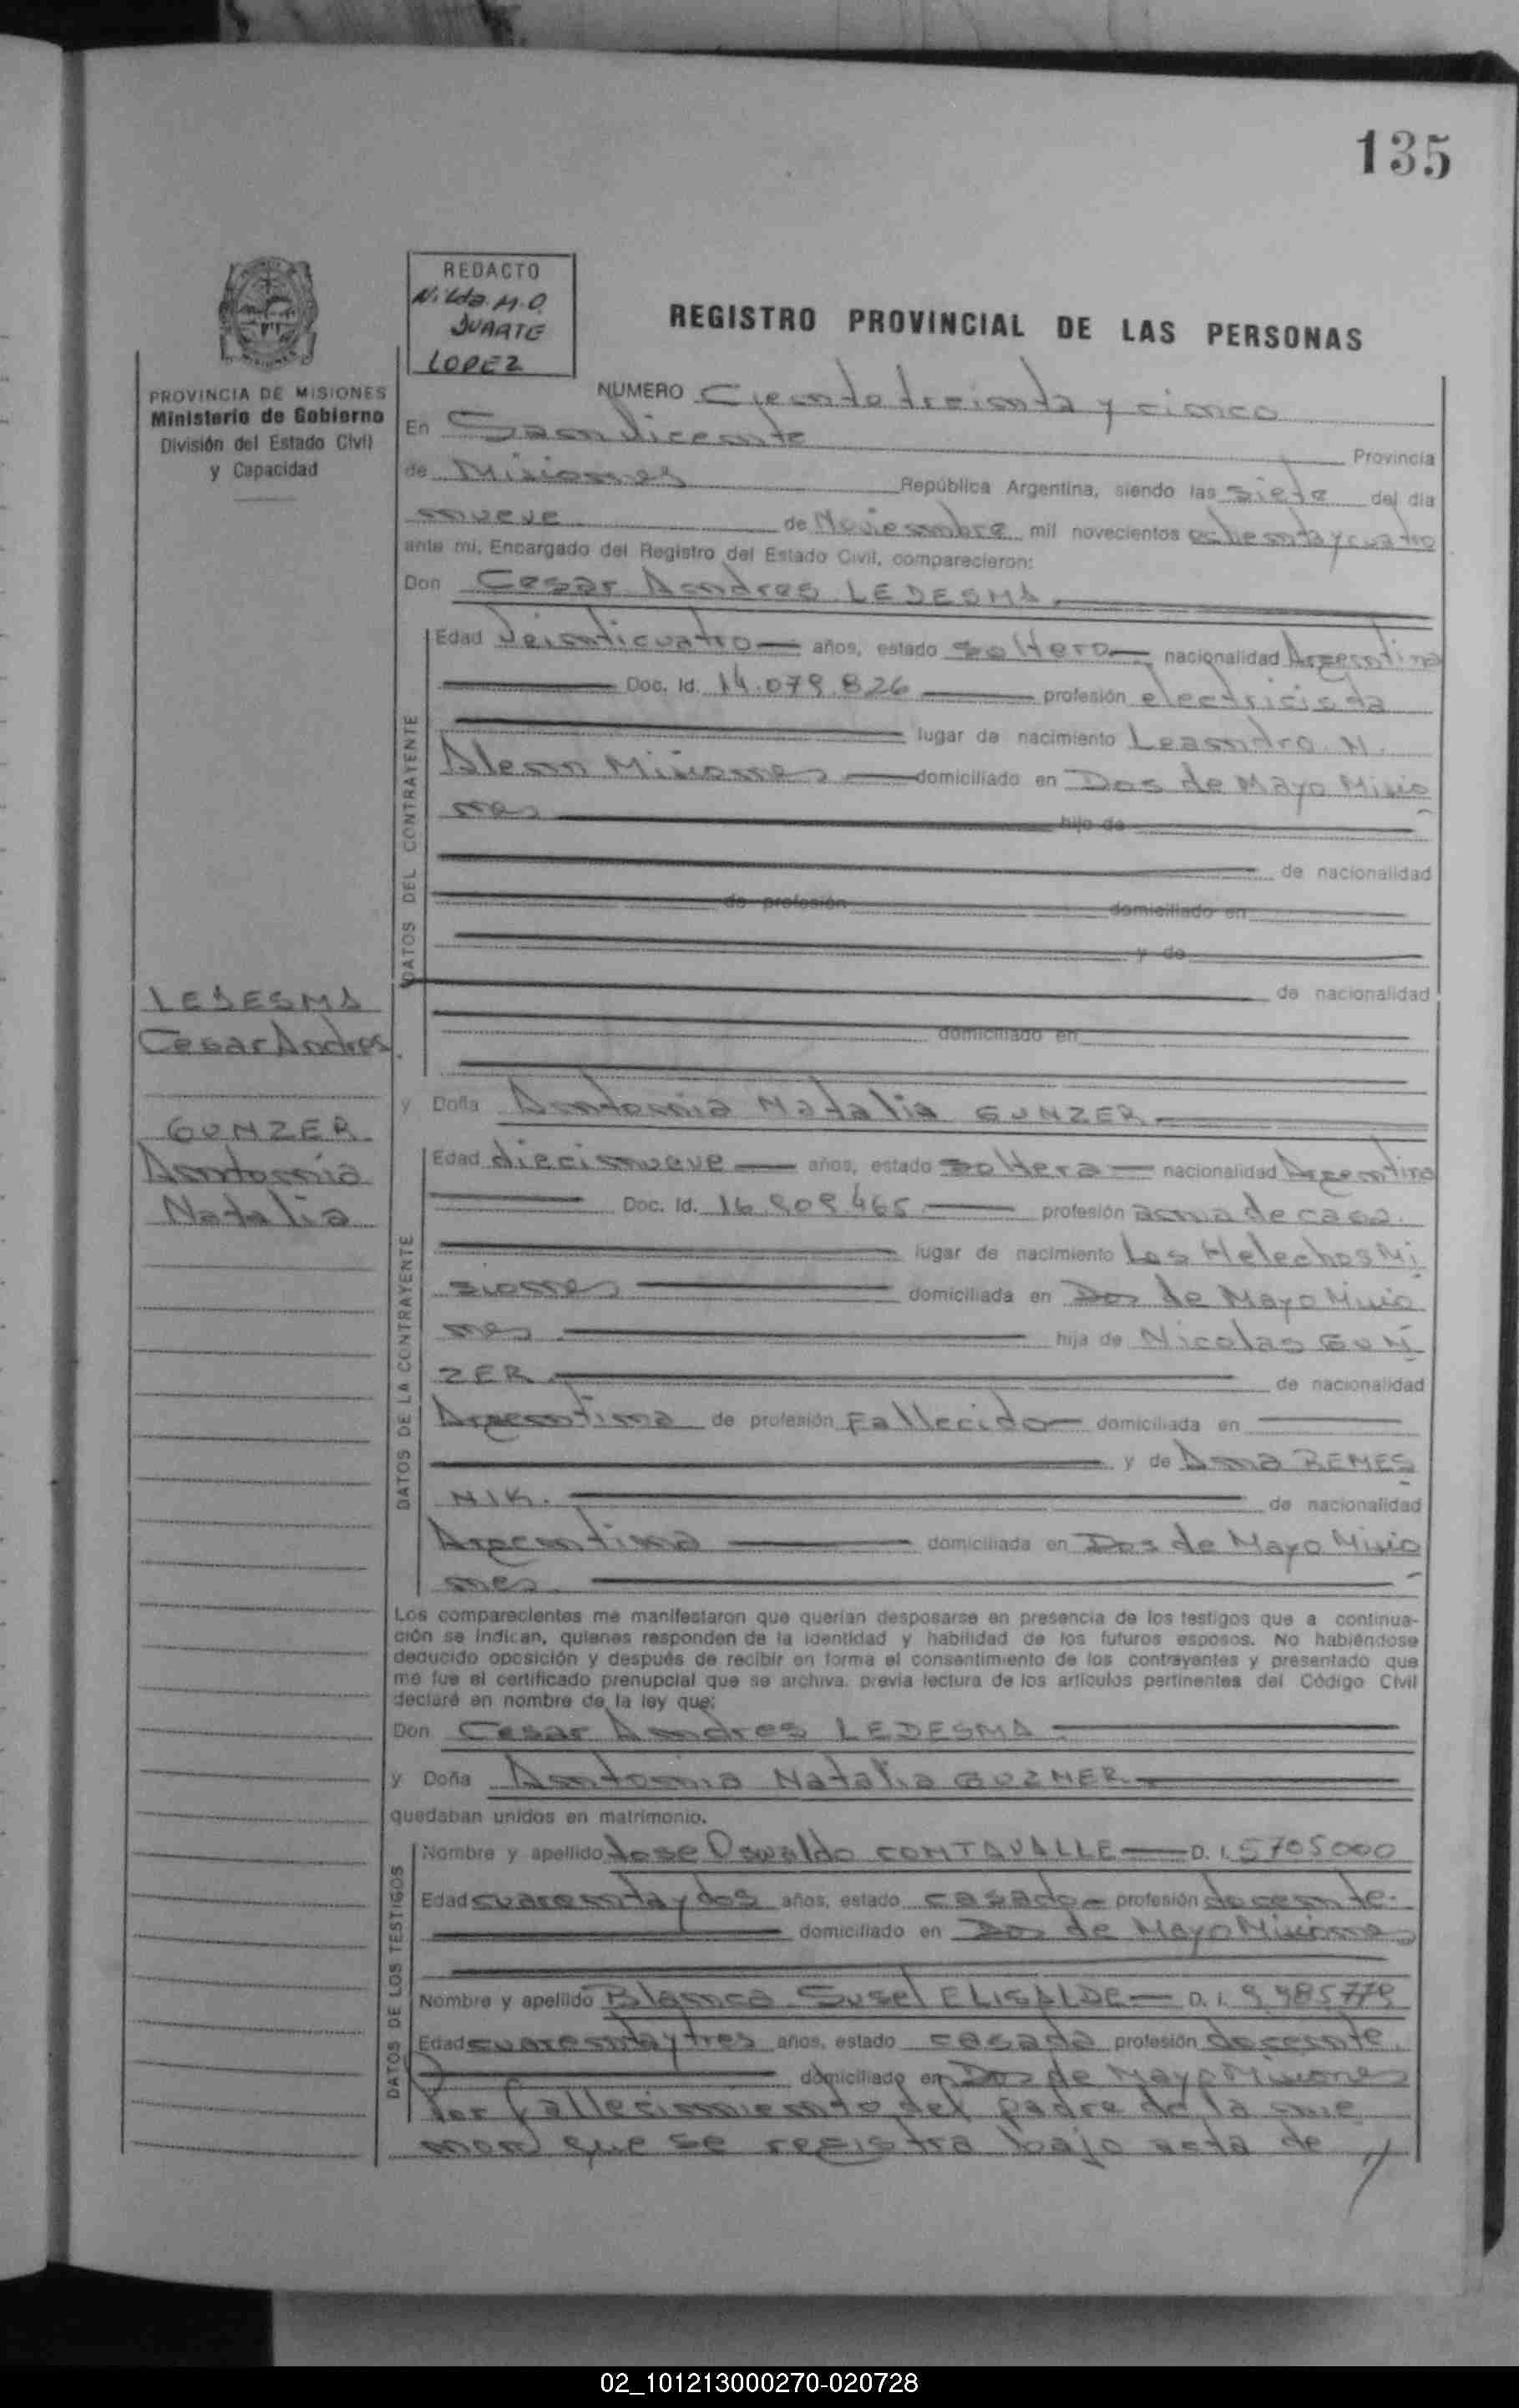 135
REDACTO
Nilda. M.O.
DUARTE
LOPEZ
REGISTRO PROVINCIAL DE LAS PERSONAS
PROVINCIA DE MISIONES
Ministerio de Gobierno
División del Estado Civil
y Capacidad
NUMERO Ciento treinta y cinco
En San Vicente Provincia
de Misiones República Argentina, siendo las siete del dia
nueve de Noviembre mil novecientos ochenta y cuatro
ante mi, Encargado del Registro del Estado Civil, comparecieron:
Don Cesar Andres LEDESMA
DATOS DEL CONTRAYENTE
Edad Veinticuatro años, estado soltero nacionalidad Argentina
Doc. Id. 14.079.826 profesión electricista
lugar de nacimiento Leandro N.
Alem Misiones domiciliado en Dos de Mayo Misio
nes hijo de
de nacionalidad
de profesión domiciliado en
y de
de nacionalidad
domiciliado en
LEDESMA
Cesar Andres
GUNZER
Antonia
Natalia
y Doña Antonia Natalia GUNZER
DATOS DE LA CONTRAYENTE
Edad diecinueve años, estado soltera nacionalidad Argentina
Doc. Id. 16.909.465 profesión ama de casa.
lugar de nacimiento Los Helechos Mi
siones domiciliada en Dos de Mayo Misio
nes hija de Nicolas GUN
ZER de nacionalidad
Argentina de profesión Fallecido domiciliada en
y de Ana REMES
NIK. de nacionalidad
Argentina domiciliada en Dos de Mayo Misio
nes
Los comparecientes me manifestaron que querían desposarse en presencia de los testigos que a continua-
ción se indican, quienes responden de la identidad y habilidad de los futuros esposos. No habiéndose
deducido oposición y después de recibir en forma el consentimiento de los contrayentes y presentado que
me fue el certificado prenupcial que se archiva, previa lectura de los artículos pertinentes del Código Civil
declaré en nombre de la ley que:
Don Cesar Andres LEDESMA
y Doña Antonia Natalia GUZNER
quedaban unidos en matrimonio.
DATOS DE LOS TESTIGOS
Nombre y apellido Jose Oswaldo CONTAVALLE D. I. 5705000
Edad cuarenta y dos años, estado casado profesión docente.
domiciliado en Dos de Mayo Misiones
Nombre y apellido Blanca Susel ELISALDE D. I. 9985779
Edad cuarenta y tres años, estado casada profesión docente.
domiciliado en Dos de Mayo Misiones
Por fallecimiento del padre de la me
nor que se registra bajo acta de
02_101213000270-020728